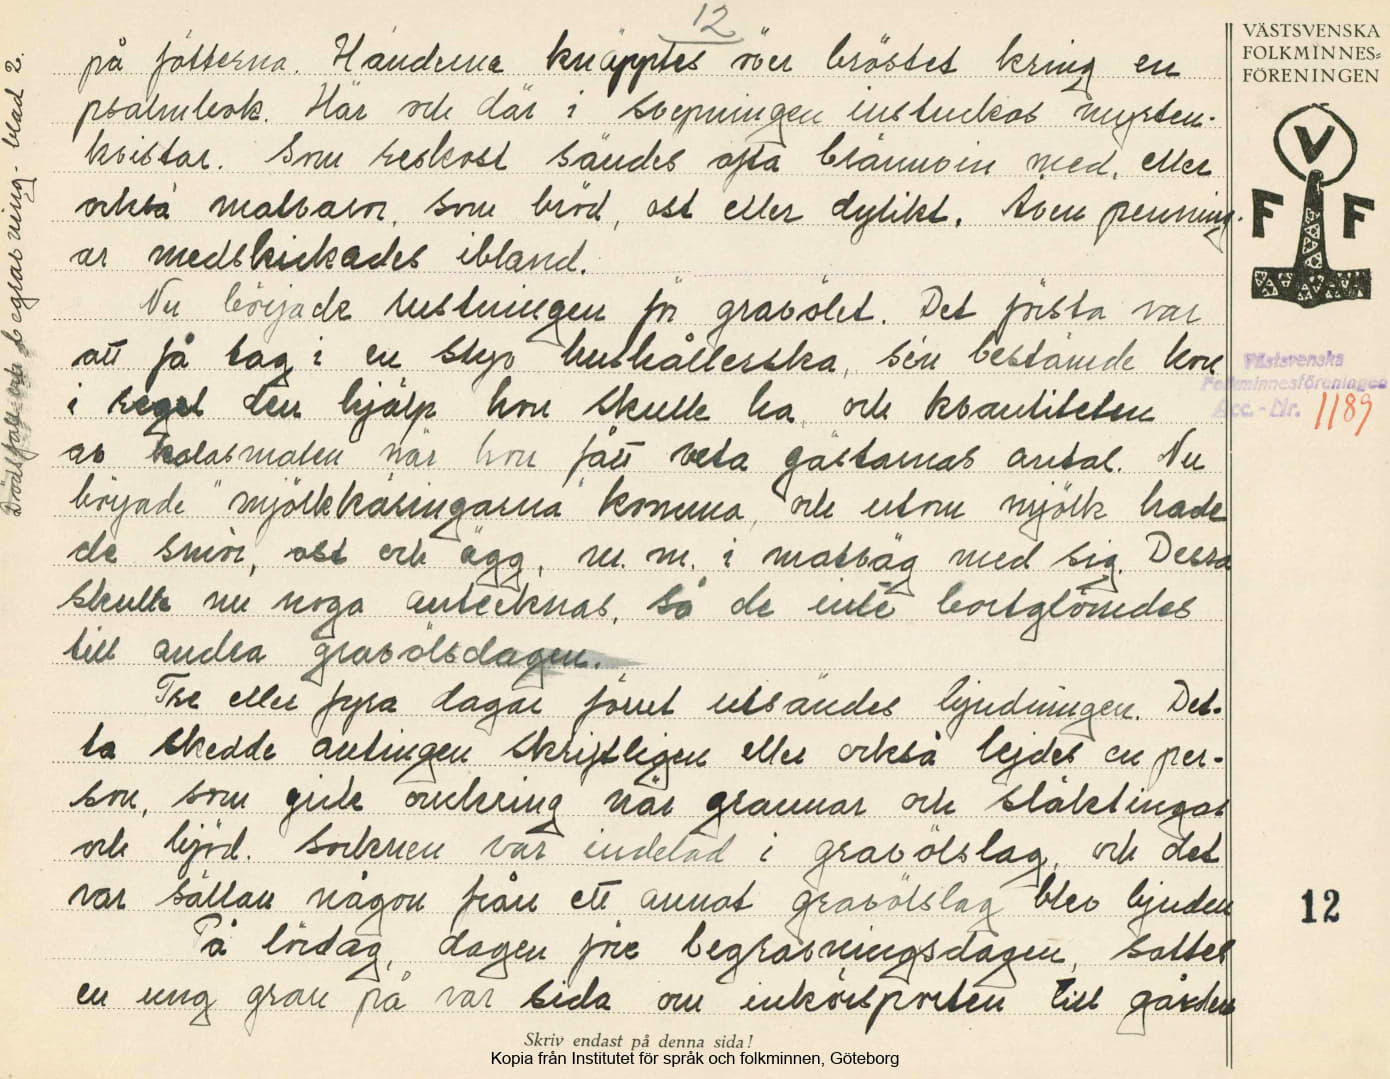 12
på fötterna. Händerna knäpptes över bröstet kring en
psalmbok. Här och där i svepningen instuckos myrten-
kvistar. Som reskost sändes ofta brännvin med, eller
också matvaror, som bröd, ost eller dylikt. Även penning-
ar medskickades ibland.
Nu började rustningen för gravölet. Det första var
att få tag i en styv hushållerska, sen bestämde hon
i regel den hjälp hon skulle ha, och kvantiteten
av kalasmaten när hon fått veta gästarnas antal. Nu
började "mjölkkäringarna" komma, och utom mjölk hade
de smör, ost och ägg, m. m. i matväg med sig. Dessa
skulle nu noga antecknas, så de inte bortglömdes
till andra gravölsdagen.
Tre eller fyra dagar förut utsändes bjudningen. Det-
ta skedde antingen skriftligen eller också lejdes en per-
son, som gick omkring när grannar och släktingar
och bjöd. Socknen var indelad i gravölslag, och det
var sällan någon från ett annat gravölslag blev bjuden
På lördag, dagen före begravningsdagen, sattes
en ung gran på var sida om inkörsporten till gården
Skriv endast på denna sida!
Kopia från Institutet för språk och folkminnen, Göteborg
Dödsfall och begravning - blad 2.
VÄSTSVENSKA
FOLKMINNES=
FÖRENINGEN
V
F F
Västsvenska
Folkminnesföreningen
Acc. - Nr. 1189
12